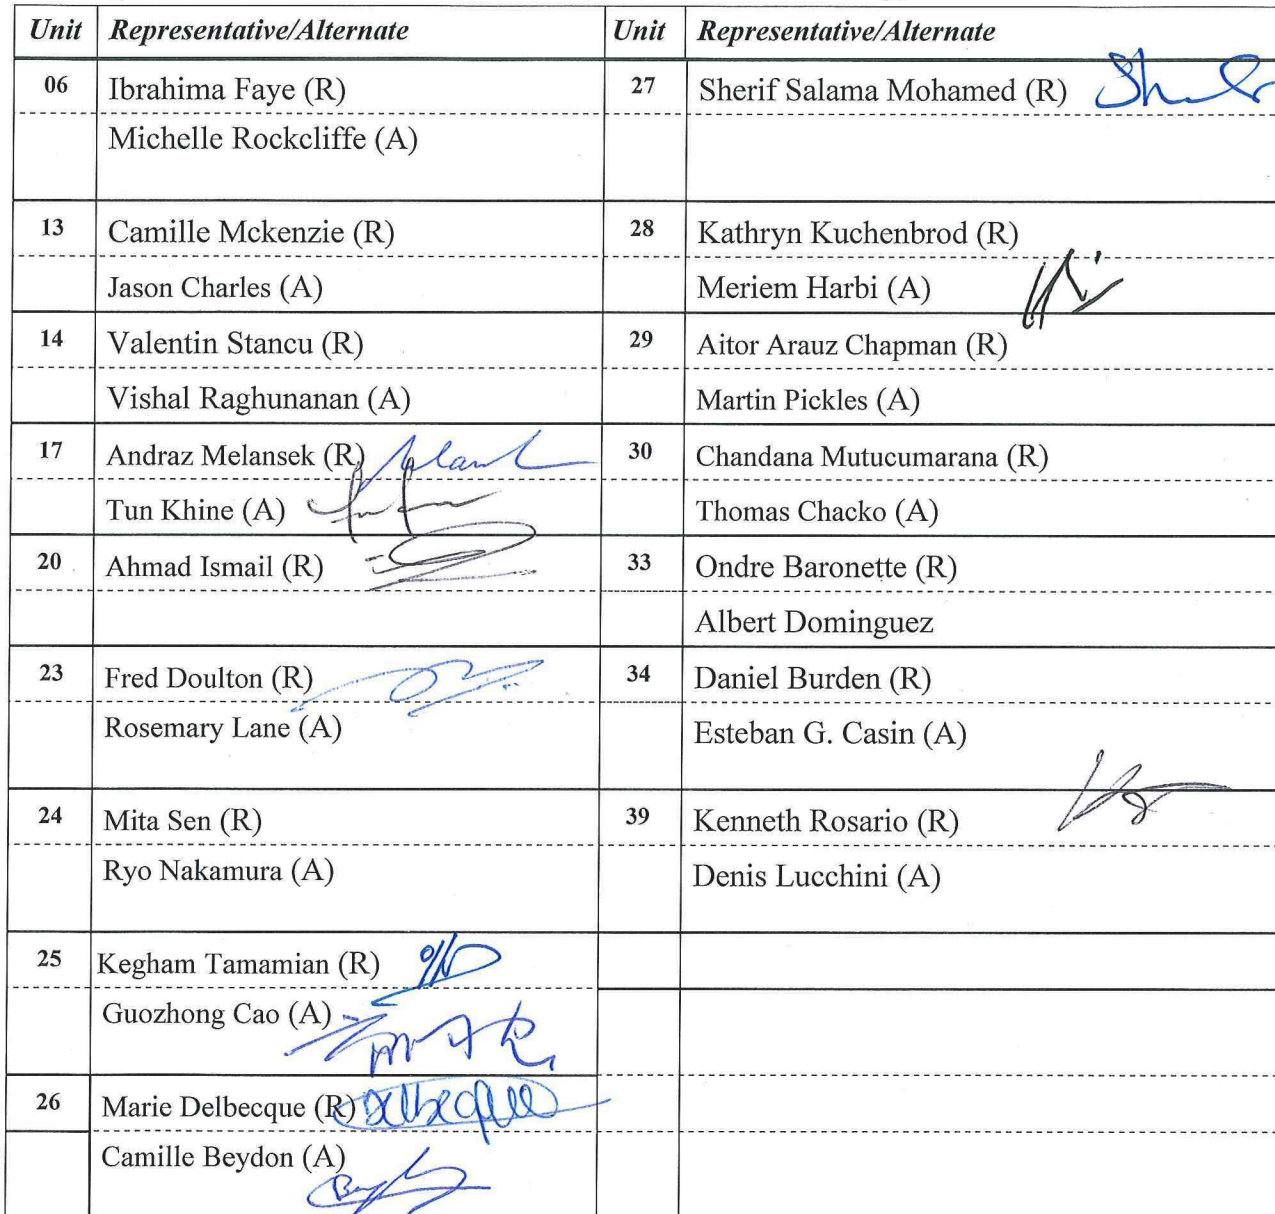 Unit Representative/Alternate Unit Representative/Alternate
06 Ibrahima Faye (R) 27 Sherif Salama Mohamed (R)
Michelle Rockcliffe (A)
13 Camille Mckenzie (R) 28 Kathryn Kuchenbrod (R)
Jason Charles (A) Meriem Harbi (A)
14 Valentin Stancu (R) 29 Aitor Arauz Chapman (R)
Vishal Raghunanan (A) Martin Pickles (A)
17 Andraz Melansek (R) 30 Chandana Mutucumarana (R)
Tun Khine (A) Thomas Chacko (A)
20 Ahmad Ismail (R) 33 Ondre Baronette (R)
Albert Dominguez
23 Fred Doulton (R) 34 Daniel Burden (R)
Rosemary Lane (A) Esteban G. Casin (A)
24 Mita Sen (R) 39 Kenneth Rosario (R)
Ryo Nakamura (A) Denis Lucchini (A)
25 Kegham Tamamian (R)
Guozhong Cao (A)
26 Marie Delbecque (R) Delbecque
Camille Beydon (A)